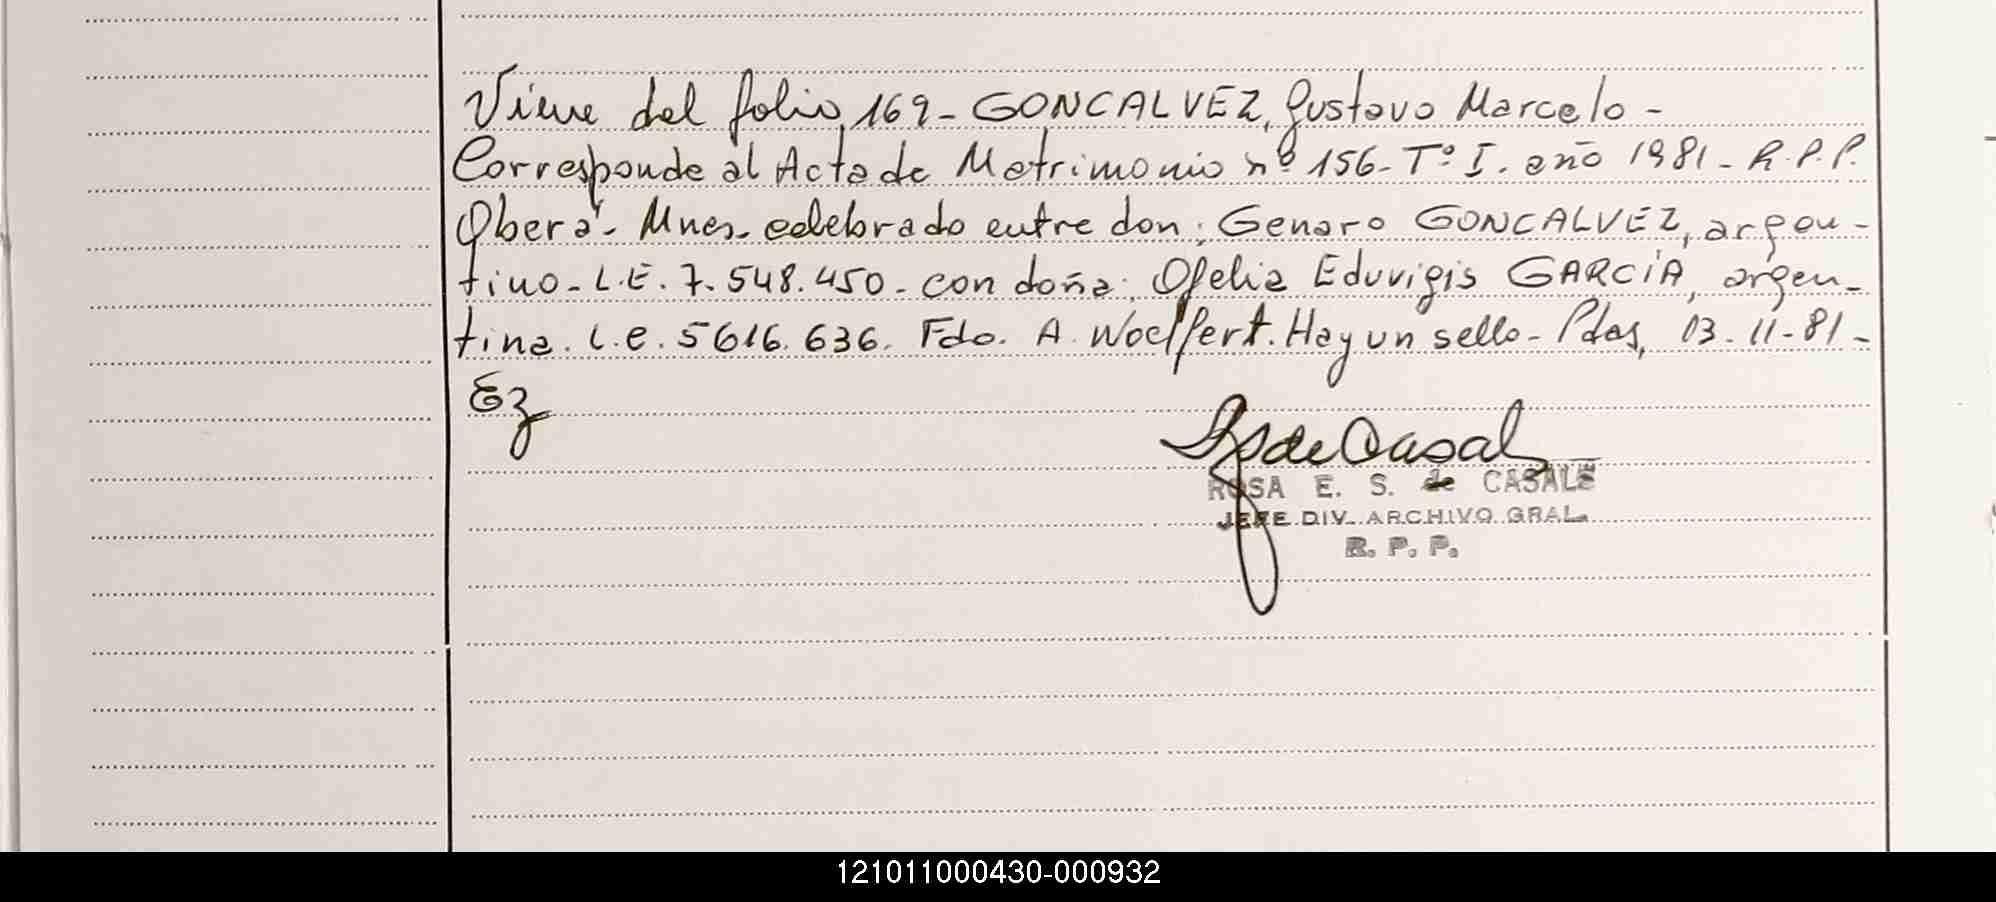 Viene del folio 169 - GONCALVEZ, Gustavo Marcelo -
Corresponde al Acta de Matrimonio nº 156 - Tº I. año 1981 - R.P.P.
Oberá - Mnes - celebrado entre don: Genaro GONCALVEZ, argen-
tino - L.E. 7.548.450 - con doña: Ofelia Eduvigis GARCÍA, argen-
tina. L.C. 5616.636. Fdo. A. Woelfert. Hay un sello - Pdas, 03-11-81 -
Ez
de Casal
ROSA E. S. de CASALE
JEFE DIV. ARCHIVO GRAL.
R. P. P.
121011000430-000932